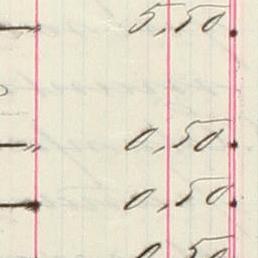 — 5,50
— " 0,50
— 0,50
0,50